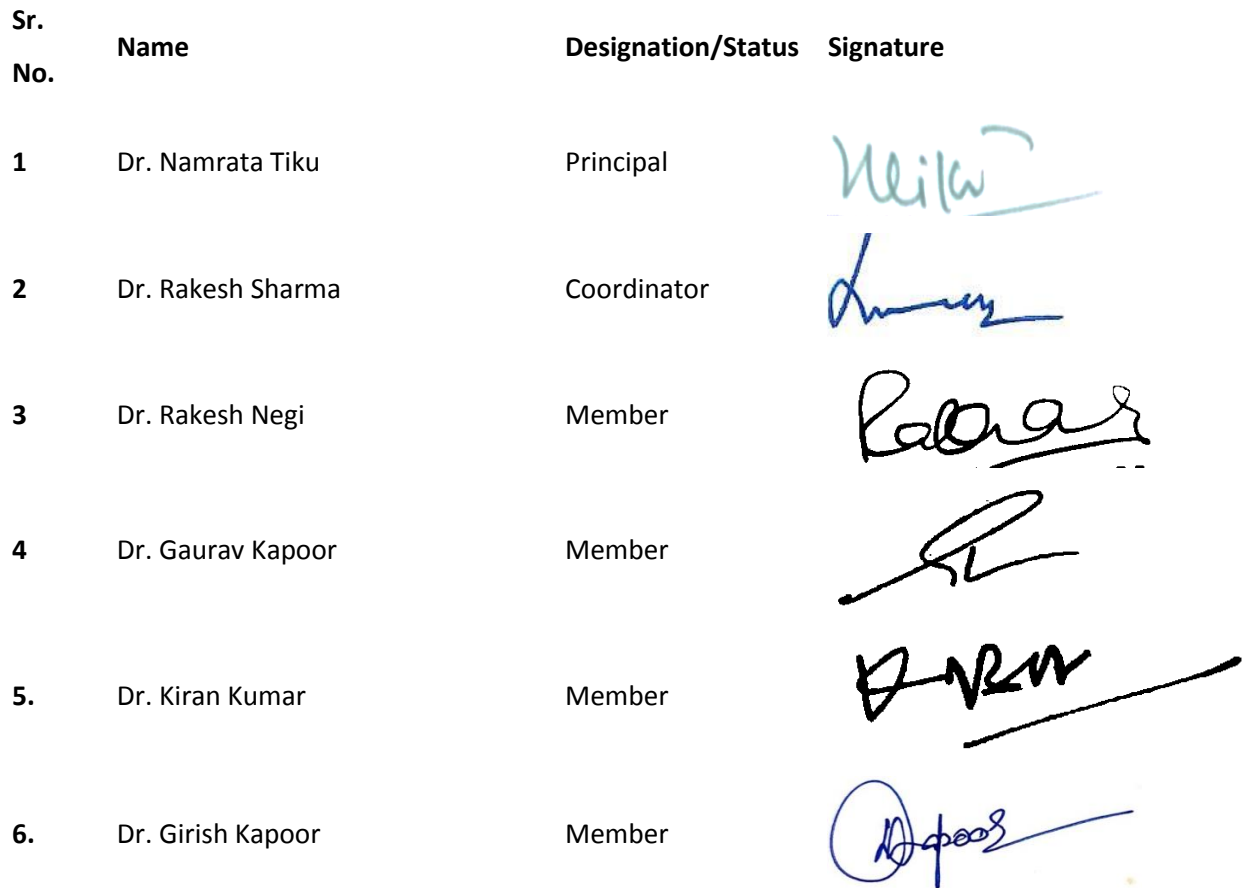 Sr. No. Name Designation/Status Signature
1 Dr. Namrata Tiku Principal
2 Dr. Rakesh Sharma Coordinator
3 Dr. Rakesh Negi Member
4 Dr. Gaurav Kapoor Member
5. Dr. Kiran Kumar Member
6. Dr. Girish Kapoor Member